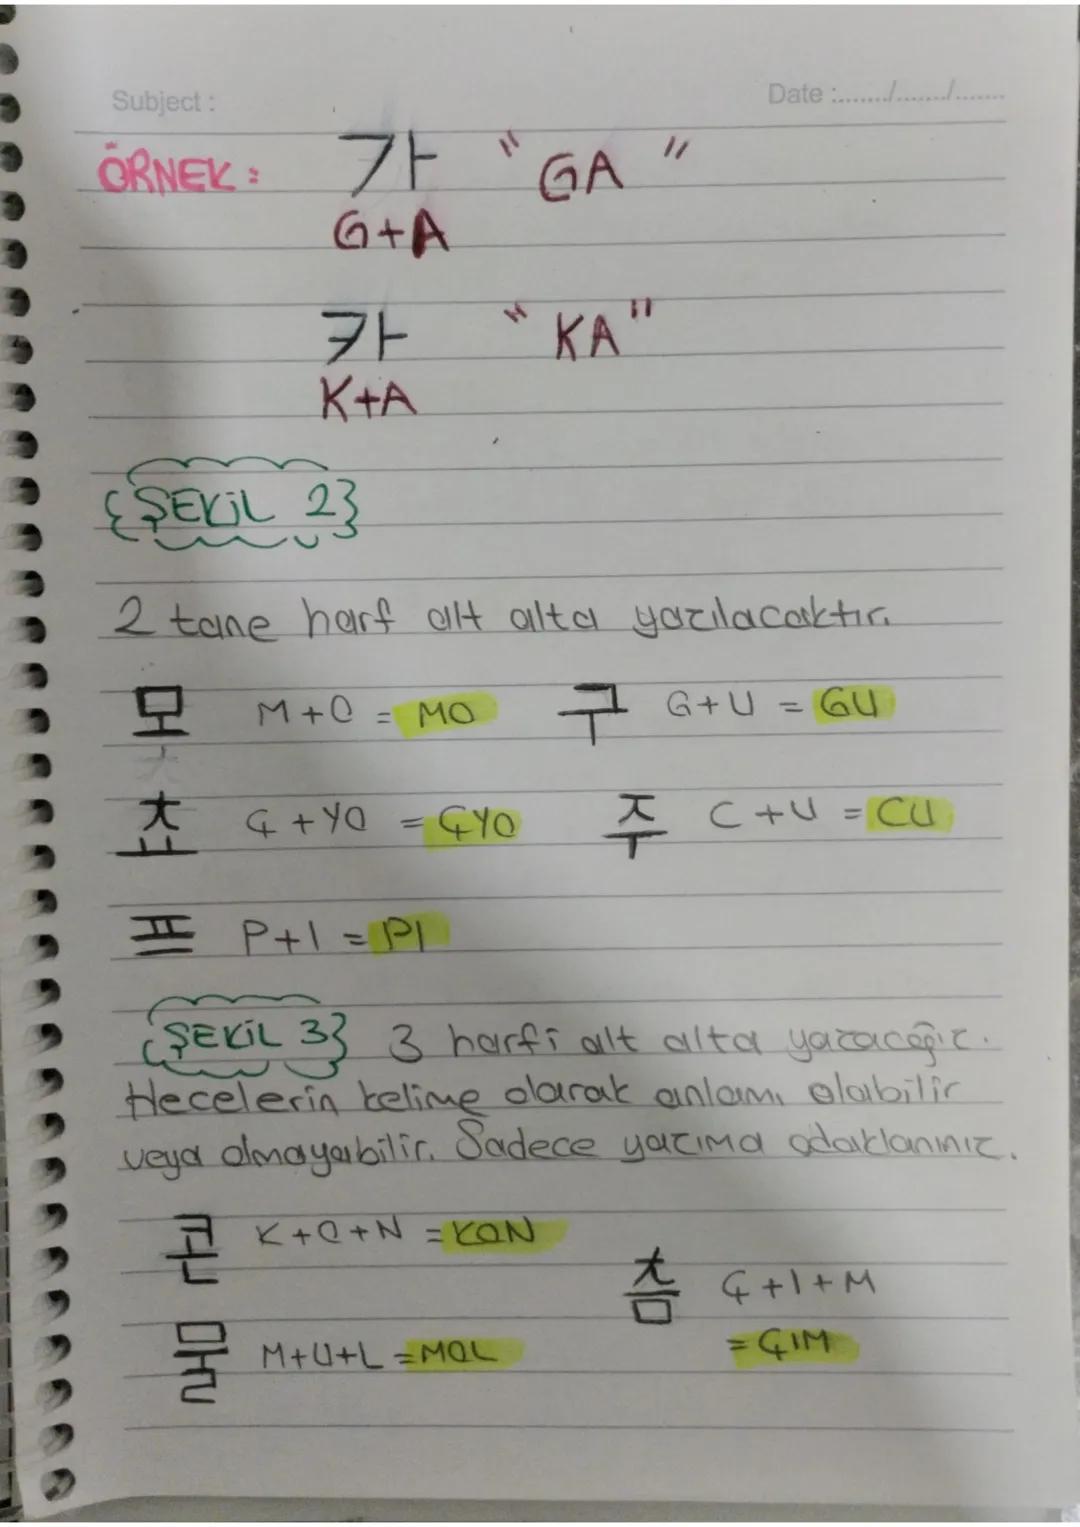 Subject :
Date :......./......./.......
ÖRNEK : 가 " GA "
G+A
카 " KA "
K+A
{ŞEKİL 2}
2 tane harf alt alta yazılacaktır.
모 M+O = MO 구 G+U = GU
쵸 Ç+YO = ÇYO 주 C+U = CU
프 P+I = PI
{ŞEKİL 3} 3 harfi alt alta yazacağız.
Hecelerin kelime olarak anlamı olabilir
veya olmayabilir. Sadece yazıma odaklanınız.
콘 K+O+N = KON
츰 Ç+I+M
= ÇIM
물 M+U+L = MOL